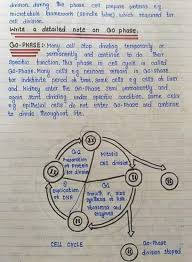 division during the phase cell prepare proteins e.g.
microtubule framework (spindle fibre) which required for
cell division.
Write a detailed note on G0 phase.
G0-PHASE: Many cell stop dividing temporarily or
permanently and continue to do their
specific function. This phase in cell cycle is called
G0-Phase. Many cells e.g neurons remain in G0-Phase
for indefinite period of time, some cells e.g cells of liver
and kidney enter the G0-Phase semi permanently and
again start dividing under specific condition. some cells
e.g epithelial cells do not enter G0-Phase and continue
to divide throughout life.
G-2
Preparation
of protein
for division
Mitotic
cell division
S
Duplication
of DNA
G1
Growth in size
synthesis of RNA
ribosomes and
enzymes
CELL CYCLE
G0-Phase
division stopped